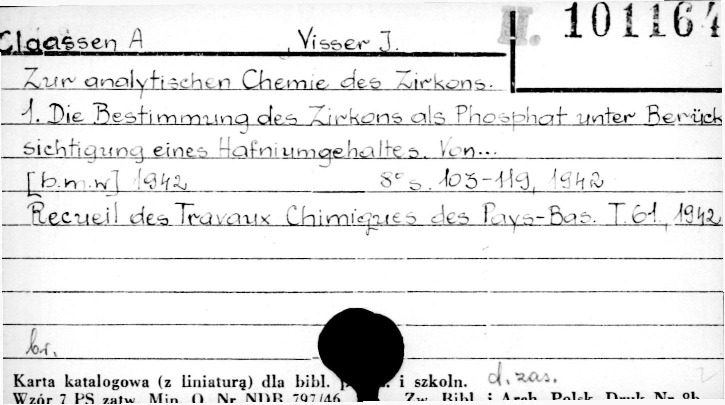 Claassen A , Visser J. II. 101164
Zur analytischen Chemie des Zirkons.
1. Die Bestimmung des Zirkons als Phosphat unter Berück
sichtigung eines Hafniumgehaltes. Von...
[b.m.w] 1942 8° s. 103-119, 1942
Recueil des Travaux Chimiques des Pays-Bas. T.61, 1942
br.
d. zas.
Karta katalogowa (z liniaturą) dla bibl. i szkoln.
Wzór 7 PS zatw. Min. O. Nr NDR 797/46 Zw. Bibl. i Arch. Polsk. Druk Nr 9b